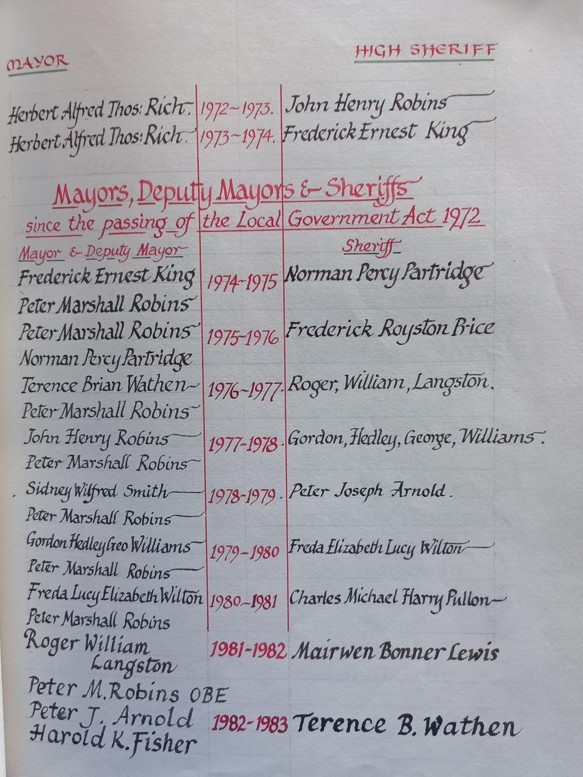 MAYOR HIGH SHERIFF
Herbert Alfred Thos: Rich. 1972~1973. John Henry Robins
Herbert Alfred Thos: Rich. 1973~1974. Frederick Ernest King
Mayors, Deputy Mayors & Sheriffs
since the passing of the Local Government Act 1972
Mayor & Deputy Mayor Sheriff
Frederick Ernest King 1974-1975 Norman Percy Partridge
Peter Marshall Robins
Peter Marshall Robins 1975-1976 Frederick Royston Price
Norman Percy Partridge
Terence Brian Wathen 1976~1977. Roger, William, Langston.
Peter Marshall Robins
John Henry Robins 1977-1978. Gordon, Hedley, George, Williams.
Peter Marshall Robins
Sidney Wilfred Smith 1978-1979. Peter Joseph Arnold.
Peter Marshall Robins
Gordon Hedley Geo Williams 1979-1980 Freda Elizabeth Lucy Wilton
Peter Marshall Robins
Freda Lucy Elizabeth Wilton 1980-1981 Charles Michael Harry Pullon
Peter Marshall Robins
Roger William 1981-1982 Mairwen Bonner Lewis
Langston
Peter M. Robins OBE
Peter J. Arnold 1982-1983 Terence B. Wathen
Harold K. Fisher